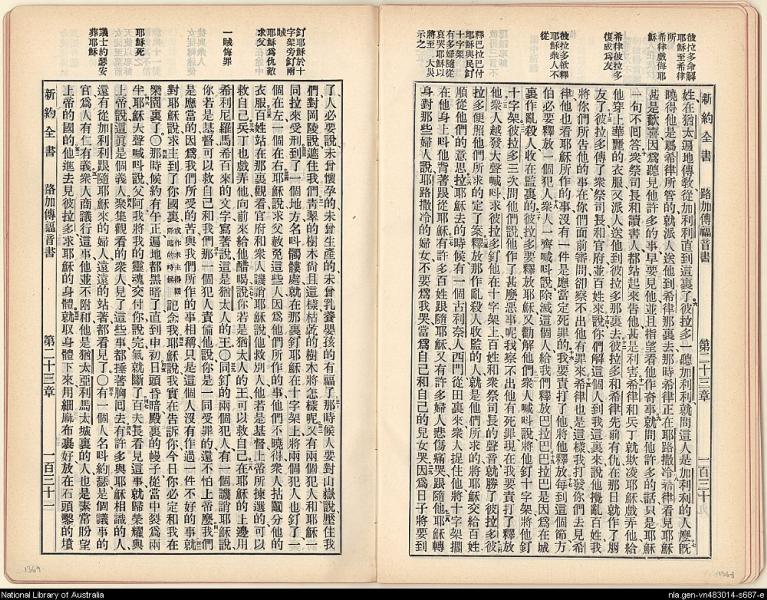 彼拉多命解
耶穌至希律
所
希律戲侮耶
穌
希律彼拉多
復成爲友
彼拉多欲釋
耶穌衆人不
從
釋巴拉巴付
耶穌與民釘
十字架
有多婦隨之
哀哭耶穌以
新約全書 路加傳福音書 第二十三章 一百三十
姓在猶太遍地傳敎從加利利直到這裏了彼拉多一聽加利利就問這人是加利利的人麼既
曉得他是希律所管的就派人送他到希律那裏去那時希律正在耶路撒冷希律看見耶穌
甚是歡喜因爲聽見他許多的事早要見他並且指望看他作奇事就問他許多的話只是耶穌
一句不回答衆祭司長和讀書人都站起來吿他甚是利害希律和兵丁就欺凌耶穌戲弄他給
他穿上華麗的衣服又派人送他到彼拉多那裏去彼拉多和希律先前有仇在那日就作了朋
友了彼拉多傳了衆祭司長和官府並百姓來說你們解這個人到我這裏來說他攪亂百姓我
將你們所吿他的事在你們面前審問卻察不出他有罪來希律也是這樣我打發你們去見希
律他也看耶穌所作的事沒有一件是應當定死罪的我要責打了他將他釋放每到這個節方
伯必要釋放一個犯人衆人一齊喊叫說除滅這個人給我們釋放巴拉巴巴拉巴是因爲在城
裏作亂殺人收在監裏的彼拉多要釋放耶穌又勸解他們衆人喊叫說將他釘十字架將他釘
十字架彼拉多三次問他們說他作了甚麼惡事呢我察不出他有死罪現在我要責打了釋放
他衆人越發大聲喊叫求彼拉多釘他在十字架上百姓和衆祭司長的聲音就勝了彼拉多彼
拉多便照他們所求的定了案釋放那作亂殺人收監的人就是他們所求的將耶穌交給百姓
順從他們的意思拉耶穌去的時候有一個古利奈人西門從田裏來衆人捉住他將十字架擱
在他身上叫他背著跟從耶穌有許多百姓跟隨耶穌又有許多婦人悲傷痛哭跟隨他耶穌轉
身對那些婦人說耶路撒冷的婦女不要爲我哭當爲自己和自己的兒女哭因爲日子將要到
釘耶穌於十
字架旁釘兩
賊
耶穌爲仇敵
求父
一賊悔罪
耶穌死
議士約瑟安
葬耶穌
了人必要說未曾懷孕的未曾生產的未曾乳養嬰孩的有福了那時候人要對山嶽說壓住我
們對岡陵說遮住我們靑翠的樹木尙且這樣枯乾的樹木將怎樣呢又有兩個犯人和耶穌一
同拉來受刑到了一個地方名叫髑髏處就在那裏釘耶穌在十字架上將兩個犯人也釘了一
個在左一個在右耶穌說求父赦免這些人因爲他們所作的事他們不曉得衆人拈鬮分他的
衣服百姓站在那裏觀看官府和衆人譏誚耶穌說他救別人他若是基督上帝所揀選的可以
救自己兵丁也戲弄他向前來給他醋喝說你若是猶太人的王可以救自己在耶穌的上邊用
希利尼羅馬希百來的文字寫著說這是猶太人的王○同釘的兩個犯人有一個譏誚耶穌說
你若是基督可以救自己和我們那一個犯人責備他說你是一同受罪的還不怕上帝麼我們
是應當的因爲我們所受的苦與我們所作的事相稱只是這個人沒有作過一件不好的事就
對耶穌說求主到了你國裏或作求主得國降臨的時候記念我耶穌說我實在吿訴你今日你必定和我在
樂園裏了○那時候約有午正遍地都黑暗了直到申初日頭昏暗殿裏的幔子從當中裂爲兩
半耶穌大聲喊叫說父阿我將我的靈魂交付你說完氣就斷了百夫長看見這事就歸榮耀與
上帝說這眞是個義人衆集觀看的衆人見了這些事都捶著胸回去有許多與耶穌相識的人
還有從加利利跟隨耶穌來的婦人遠遠的站著都看見了○有一個人名叫約瑟是個議事的
官爲人有仁有義衆人商議行這事他並不附和他是猶太亞利馬太城裏的人也是素常盼望
上帝的國的他進去見彼拉多求耶穌的身體就取身體下來用細麻布裹好放在石頭鑿的墳
新約全書 路加傳福音書 第二十三章 一百三十一
1369
National Library of Australia
nla.gen-vn483014-s687-e